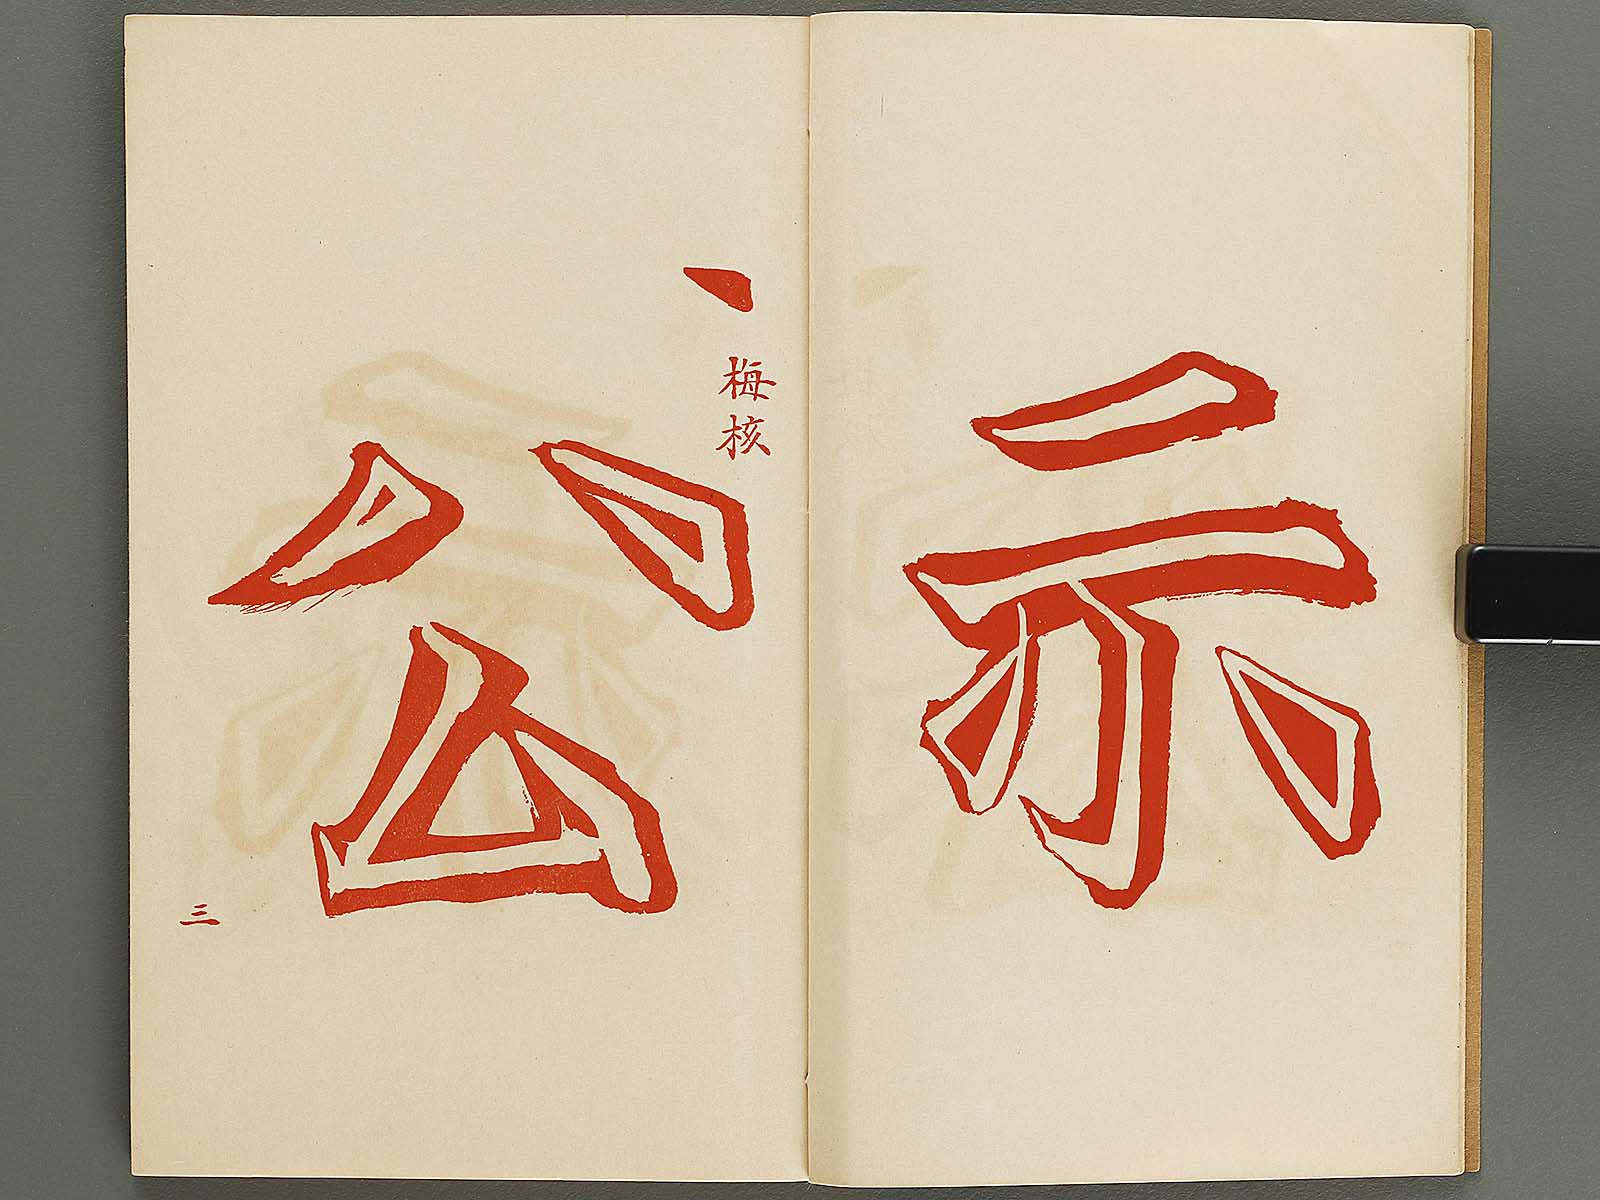 示
丶
梅核
公
三